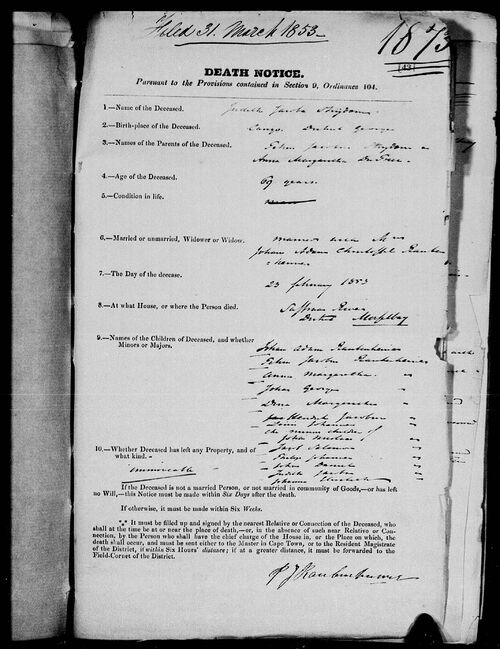 Filed 31. March 1853
1873
DEATH NOTICE.
Pursuant to the Provisions contained in Section 9, Ordinance 104.
1.—Name of the Deceased. Judith Jacoba
2.—Birth-place of the Deceased. District George
3.—Names of the Parents of the Deceased.
Anna Margaretha
4.—Age of the Deceased. 69 years
5.—Condition in life.
6.—Married or unmarried, Widower or Widow. married
Johan Adam Christoffel
7.—The Day of the decease. 23 february 1853
8.—At what House, or where the Person died. River
District Mosselbay
9.—Names of the Children of Deceased, and whether
Minors or Majors. Johan Adam Rautenheimer
Rautenheimer
Anna Margaretha
Johan George
Dina Margaretha
Hendrik Jacobus
Louis Johannes
the minor children of
10.—Whether Deceased has left any Property, and of
what kind.
immoveable
Salomon
Philip Johannes
John Daniel
Judith Jacoba
Johanna Elizabeth
If the Deceased is not a married Person, or not married in community of Goods,—or has left
no Will,—this Notice must be made within Six Days after the death.
If otherwise, it must be made within Six Weeks.
*** It must be filled up and signed by the nearest Relative or Connection of the Deceased, who
shall at the time be at or near the place of death,—or, in the absence of such near Relative or Con-
nection, by the Person who shall have the chief charge of the House in, or the Place on which, the
death shall occur, and must be sent either to the Master in Cape Town, or to the Resident Magistrate
of the District, if within Six Hours' distance; if at a greater distance, it must be forwarded to the
Field-Cornet of the District.